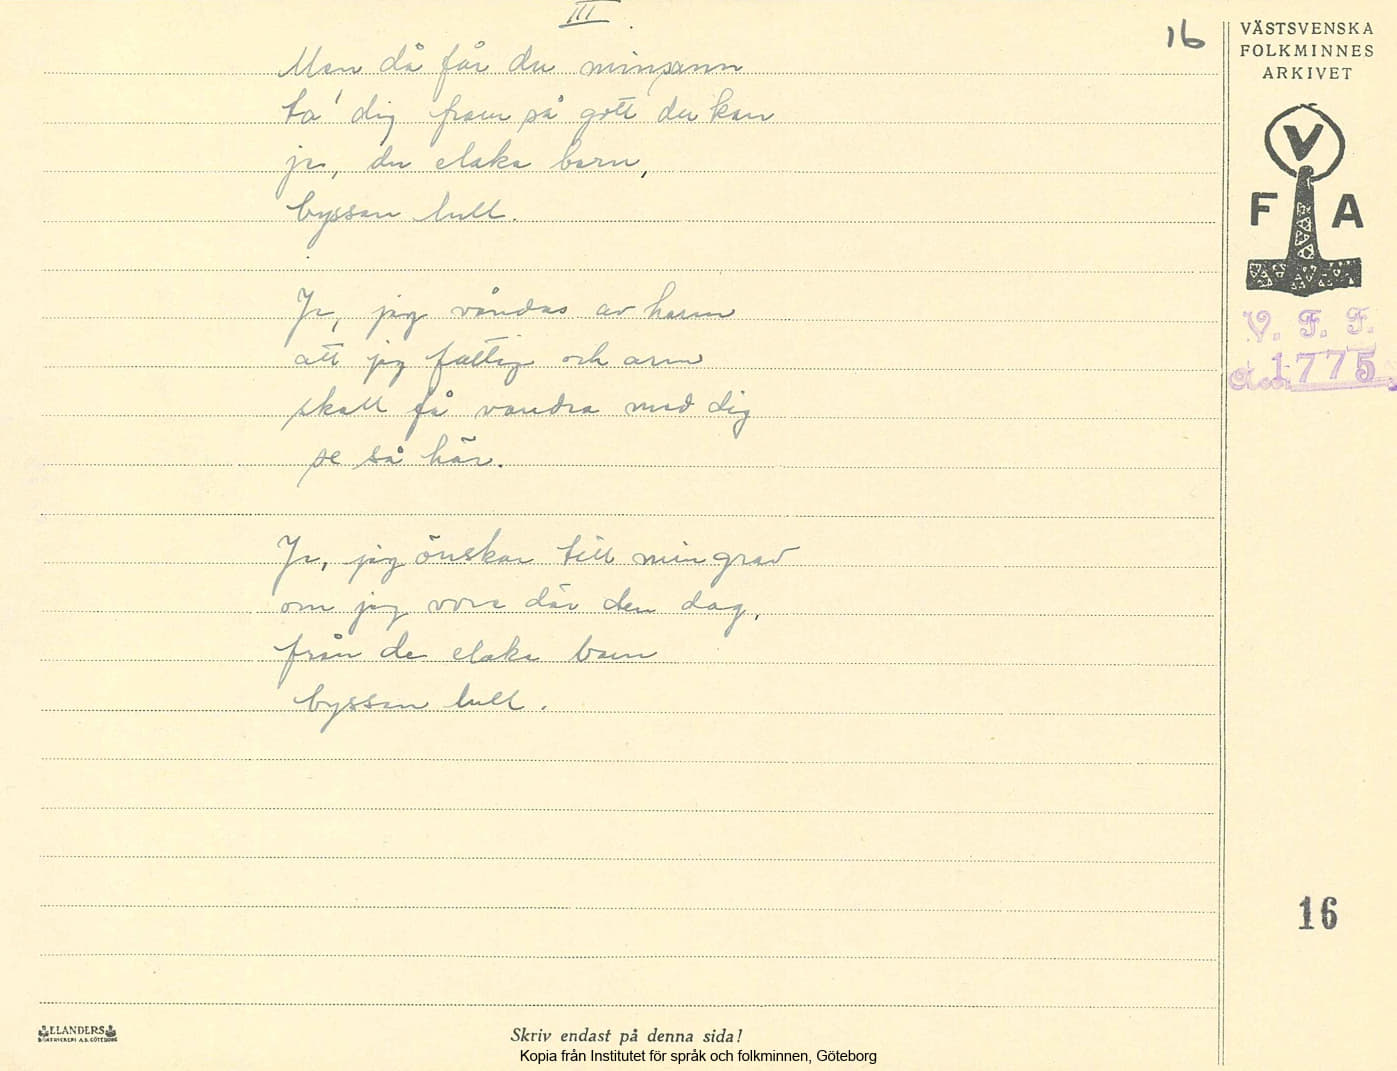 III.
16
Men då får du minsann
ta' dig fram så gott du kan
ja, du elaka barn,
byssan lull.
Ja, jag våndas av harm
att jag fattig och arm
skall få vandra med dig
se så här.
Ja, jag önskar till min grav
om jag vore där den dag,
från de elaka barn
byssan lull.
VÄSTSVENSKA
FOLKMINNES
ARKIVET
V
F A
V. F. F.
1775
16
ELANDERS
BOKTRYCKERI A.B. GÖTEBORG
Skriv endast på denna sida!
Kopia från Institutet för språk och folkminnen, Göteborg